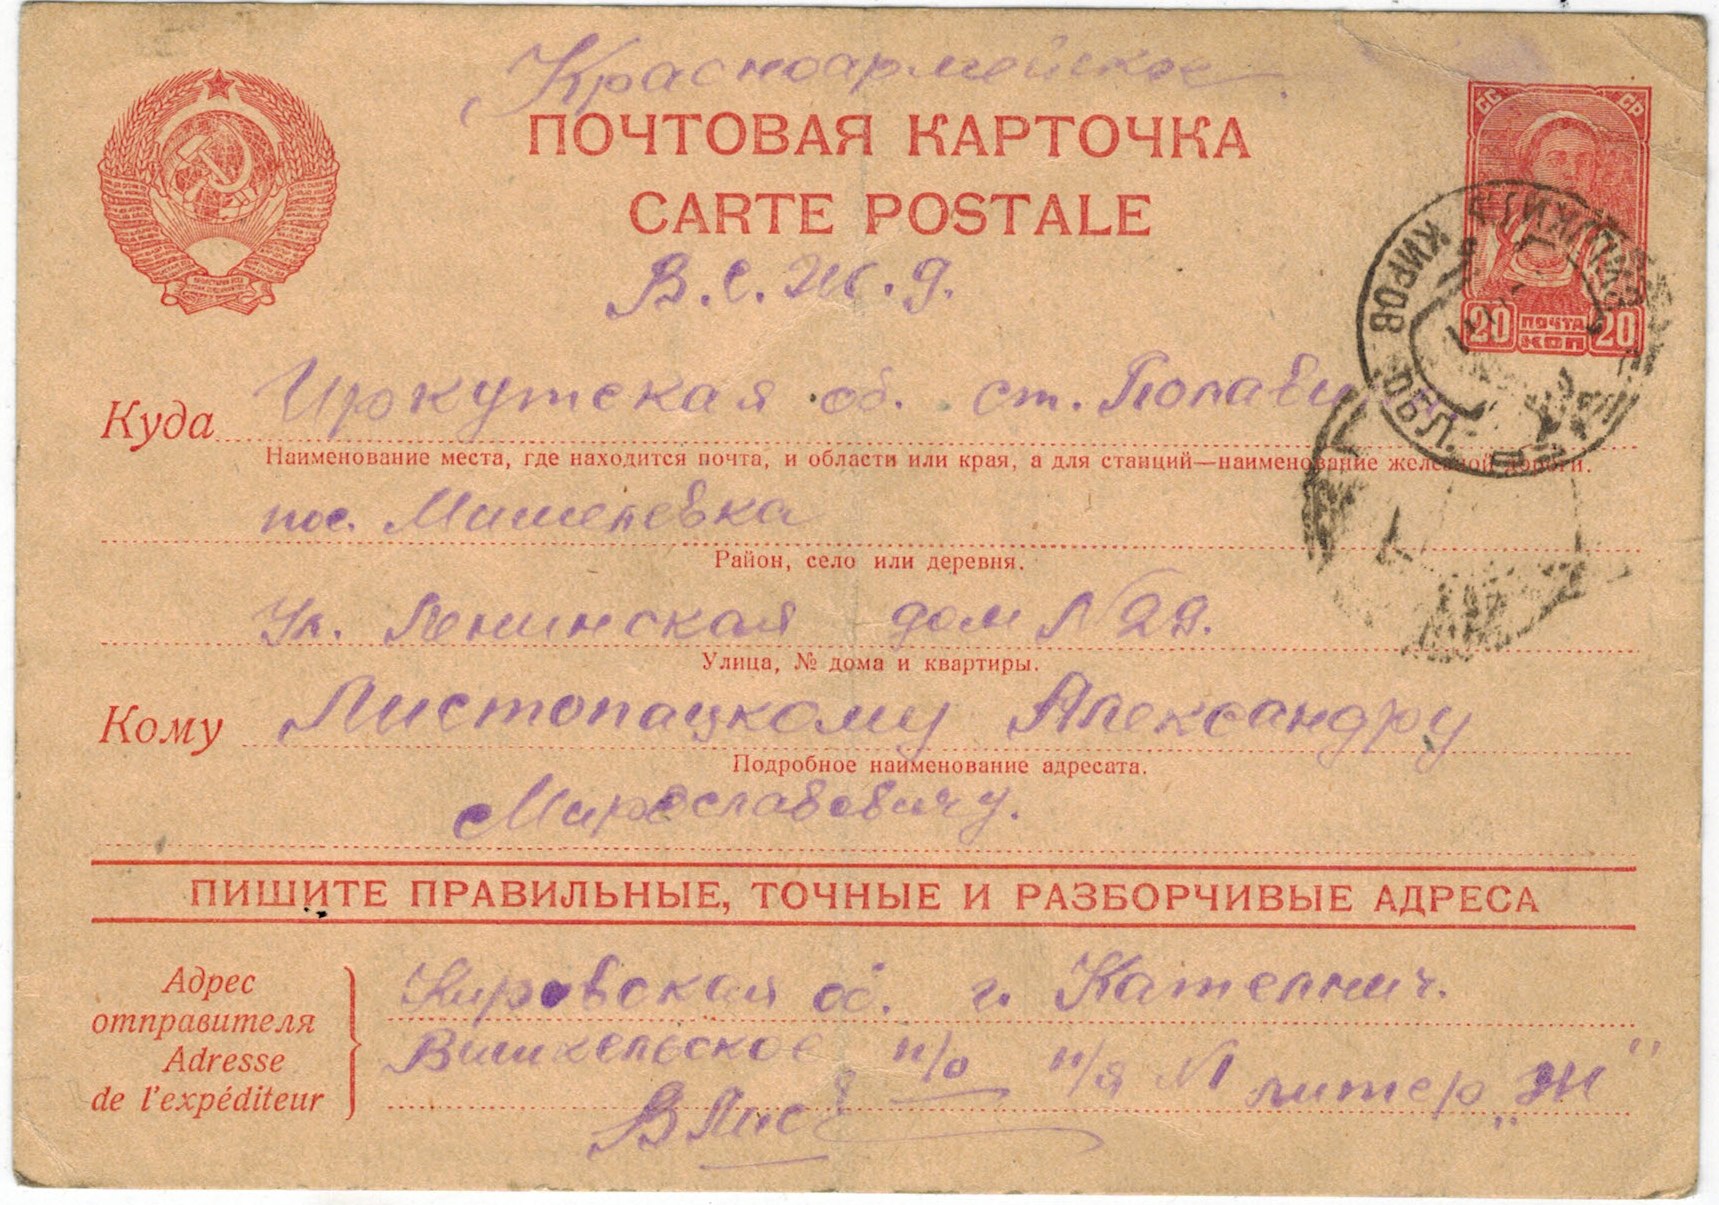 Красноармейское
ПОЧТОВАЯ КАРТОЧКА
CARTE POSTALE
В. С. Ж. д.
СС СР
20 ПОЧТА 20
КОП
КИРОВ. ОБЛ.
Куда Иркутская об. ст. Половина
Наименование места, где находится почта, и области или края, а для станций—наименование железной дороги.
пос. Мишелевка
Район, село или деревня.
Ул. Ленинская дом №
Улица, № дома и квартиры.
Кому Листопацкому Александру
Подробное наименование адресата.
Мирославовичу.
ПИШИТЕ ПРАВИЛЬНЫЕ, ТОЧНЫЕ И РАЗБОРЧИВЫЕ АДРЕСА
Адрес
отправителя
Adresse
de l'expéditeur
Кировская об. г. Кателнич.
Вишкельское п/о п/я №1 литер „Ж"
В Лис